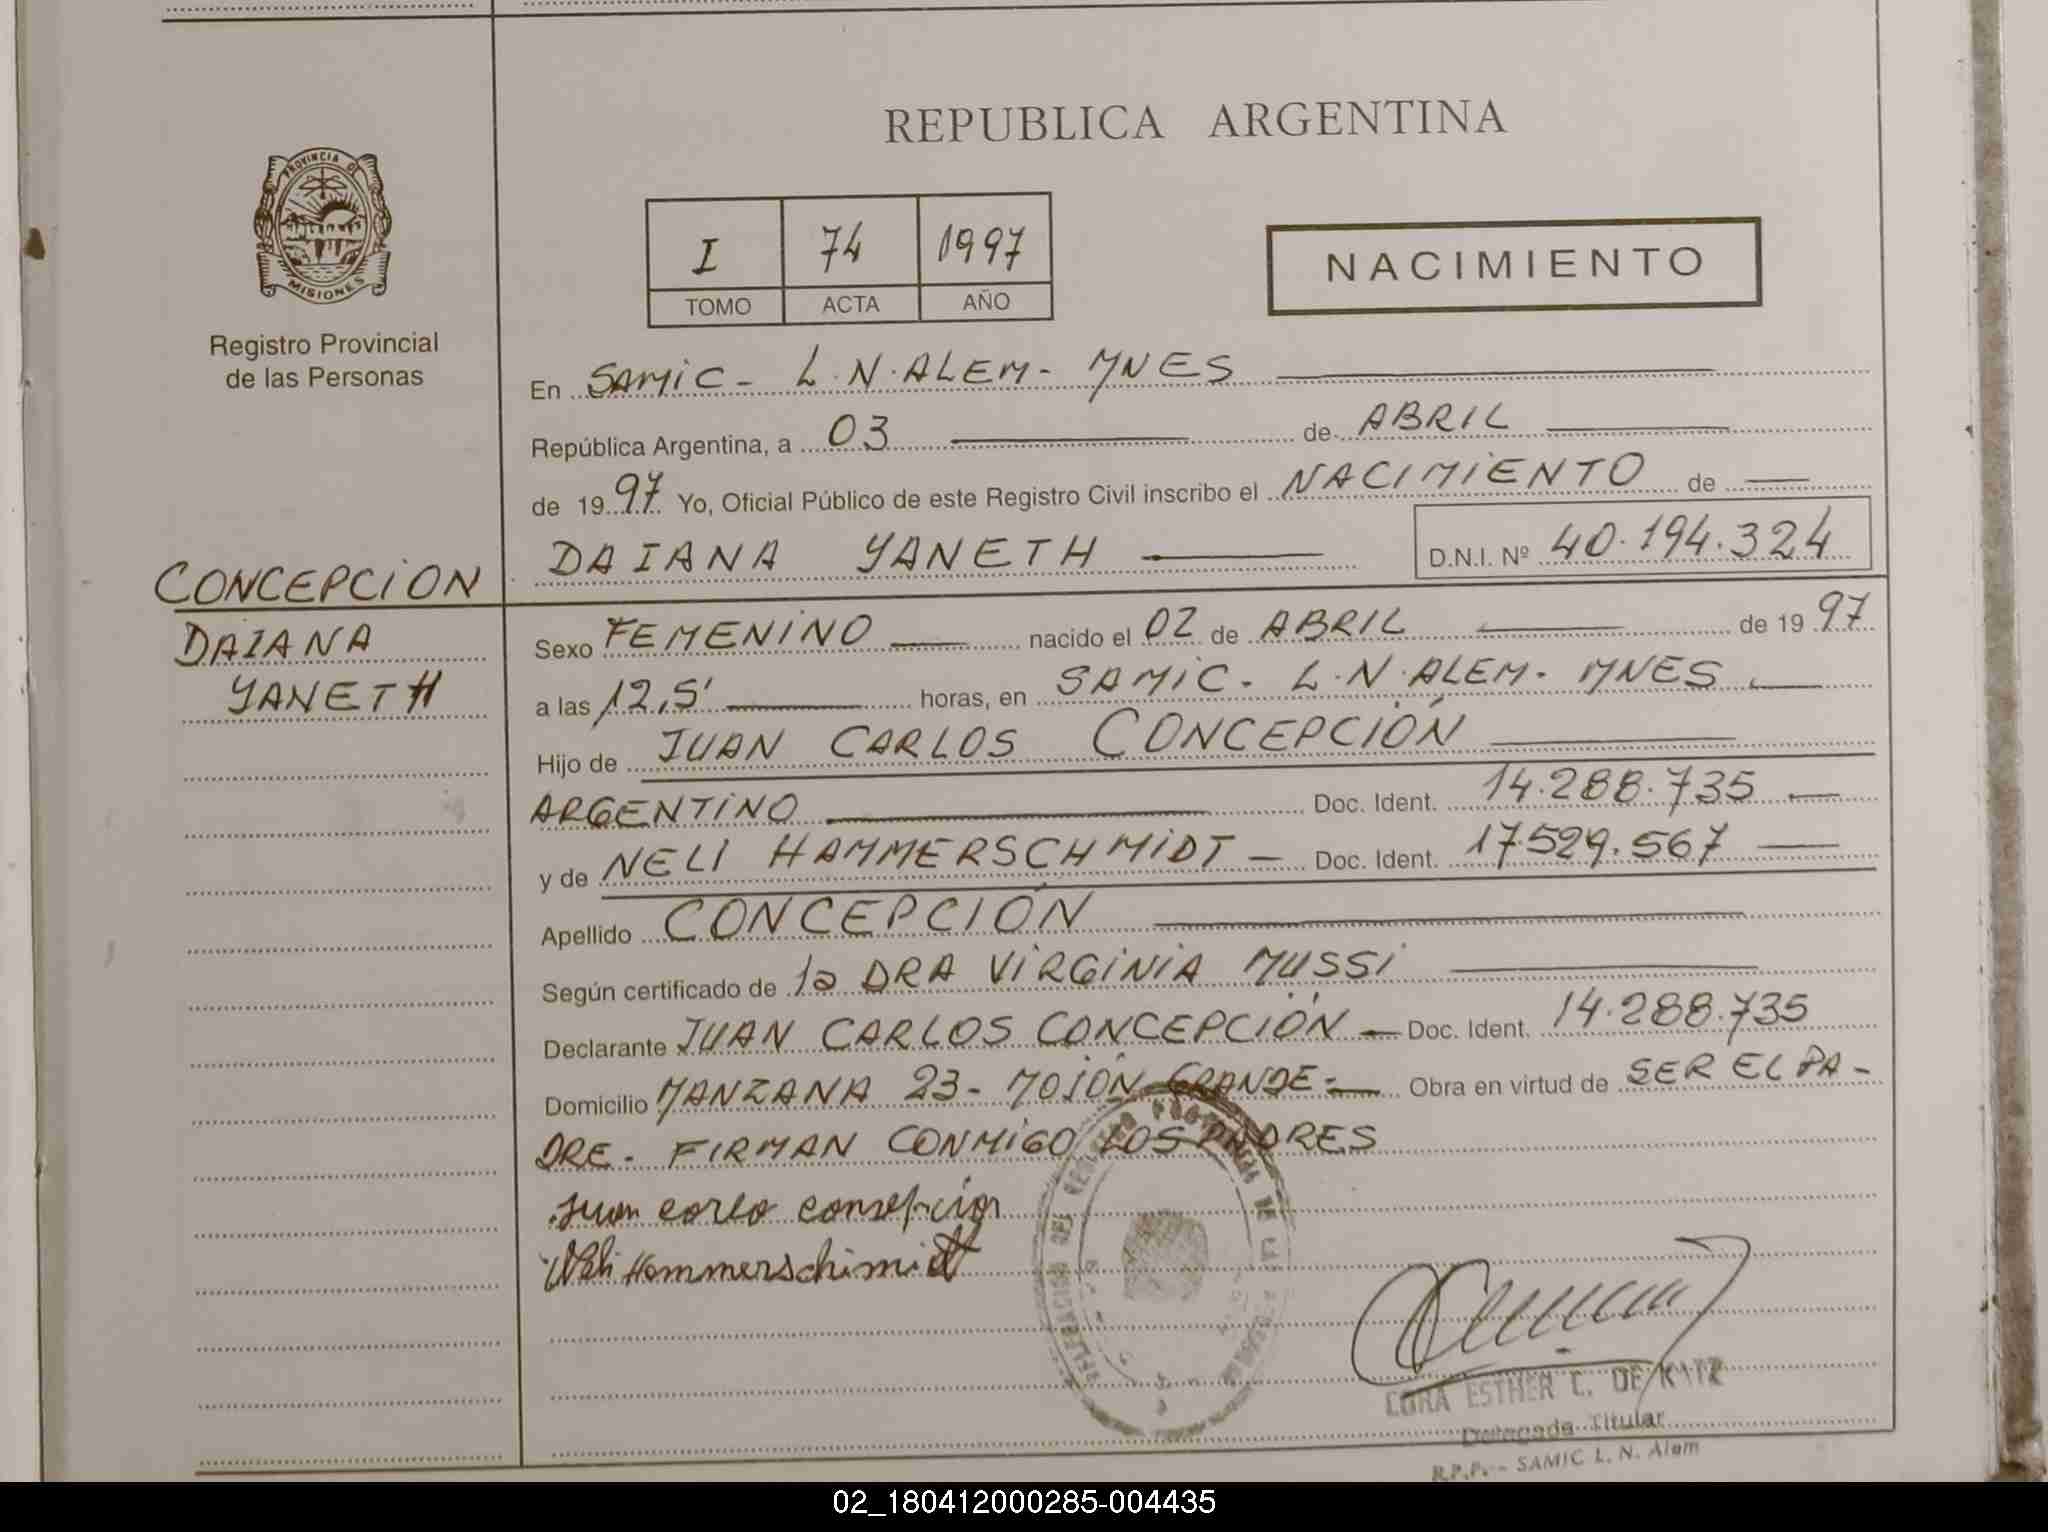 REPUBLICA ARGENTINA
PROVINCIA DE
MISIONES
Registro Provincial
de las Personas
I 74 1997
TOMO ACTA AÑO
NACIMIENTO
En SAMIC - L.N.ALEM - MNES
República Argentina, a 03 de ABRIL
de 1997 Yo, Oficial Público de este Registro Civil inscribo el NACIMIENTO de
DAIANA YANETH D.N.I. Nº 40.194.324
CONCEPCION
DAIANA
YANETH
Sexo FEMENINO nacido el 02 de ABRIL de 1997
a las 12,5' horas, en SAMIC - L.N.ALEM - MNES
Hijo de JUAN CARLOS CONCEPCIÓN
ARGENTINO Doc. Ident. 14.288.735
y de NELI HAMMERSCHMIDT Doc. Ident. 17.529.567
Apellido CONCEPCIÓN
Según certificado de la DRA VIRGINIA MUSSI
Declarante JUAN CARLOS CONCEPCIÓN Doc. Ident. 14.288.735
Domicilio MANZANA 23 - MOJÓN GRANDE - Obra en virtud de SER EL PA-
DRE - FIRMAN CONMIGO LOS PADRES
Juan corlo consepcion
Neli Hommerschimidt
CORA ESTHER C. DE KATZ
Delegada Titular
R.P.P. - SAMIC L. N. Alem
02_180412000285-004435